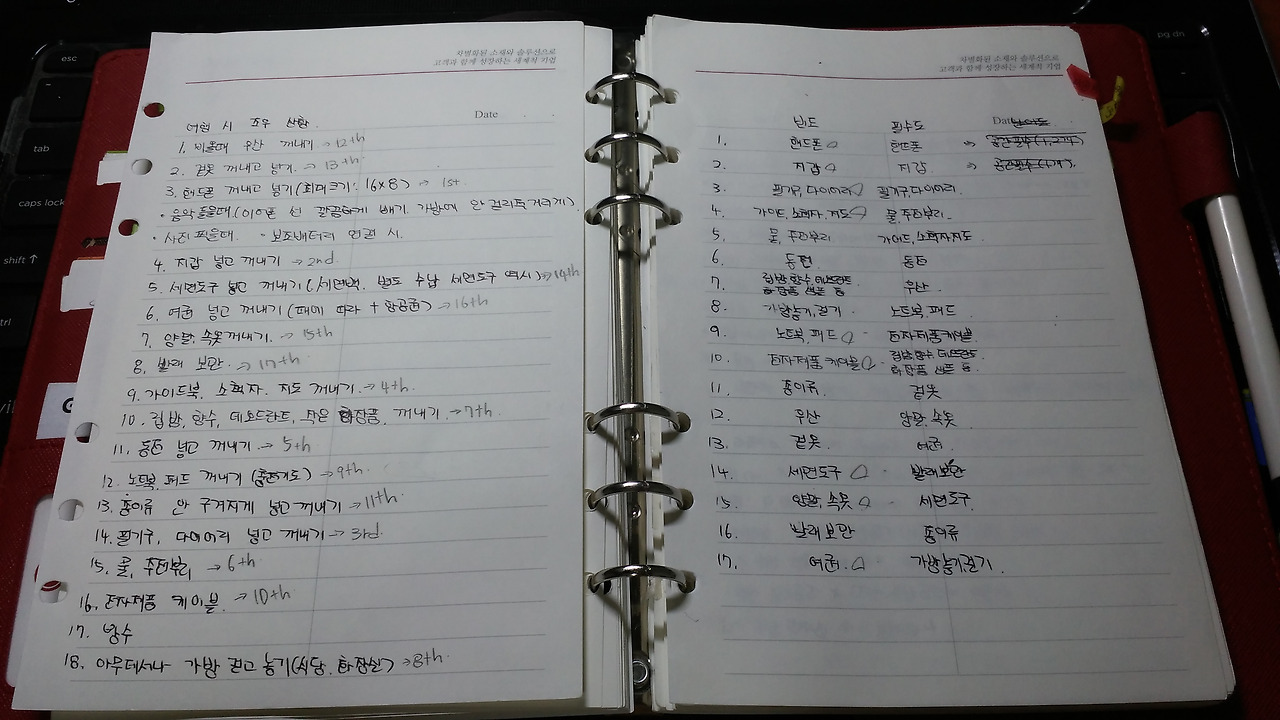 차별화된 소재와 솔루션으로
고객과 함께 성장하는 세계적 기업
Date
여행 시 주요 상황.
1. 비올때 우산 꺼내기 → 12th
2. 겉옷 꺼내고 넣기 → 13th
3. 핸드폰 꺼내고 넣기(최대크기: 16x8) → 1st
• 음악들을때(이어폰 선 깔끔하게 빼기. 가방에 안 걸리적거리게)
• 사진 찍을때. • 보조배터리 연결 시.
4. 지갑 넣고 꺼내기 → 2nd
5. 세면도구 넣고 꺼내기 (세면백, 별도 수납 세면도구 역시) → 14th
6. 여권 넣고 꺼내기 (때에 따라 + 항공권) → 16th
7. 양말, 속옷꺼내기. → 15th
8. 빨래 보관. → 17th
9. 가이드북, 소책자. 지도 꺼내기. → 4th.
10. 립밤, 향수, 데오드란트, 작은 화장품 꺼내기 → 7th
11. 동전 넣고 꺼내기 → 5th
12. 노트북, 패드 꺼내기 → 9th.
13. 종이류 안 구겨지게 넣고 꺼내기 → 11th
14. 필기구, 다이어리 넣고 꺼내기 → 3rd
15. 물, 주전부리 → 6th
16. 전자제품 케이블. → 10th
17. 방수
18. 아무데서나 가방 걸고 놓기(식당, 화장실) → 8th
차별화된 소재와 솔루션으로
고객과 함께 성장하는 세계적 기업
빈도 필수도 Date
1. 핸드폰 핸드폰 ⇒
2. 지갑 지갑 ⇒
3. 필기구, 다이어리 필기구,다이어리.
4. 가이드, 소책자, 지도 물, 주전부리.
5. 물, 주전부리 가이드, 소책자,지도
6. 동전 동전
7. 립밤, 향수, 데오드란트 우산
화장품 샘플 등
8. 가방놓기,걸기 노트북, 패드
9. 노트북, 패드 전자제품케이블
10. 전자제품 케이블 립밤, 향수, 데오드란트
화장품 샘플 등.
11. 종이류 겉옷
12. 우산 양말, 속옷
13. 겉옷 여권.
14. 세면도구 빨래보관
15. 양말, 속옷 세면도구
16. 빨래보관 종이류
17. 여권 가방놓기,걸기.
esc
tab
caps lock
shift ↑
pg dn